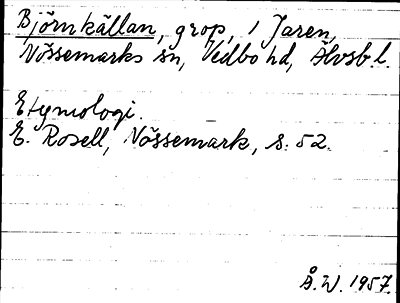 Björnkällan, grop, i Jaren,
Nössemarks sn, Vedbo hd, Älvsb. l.
Etymologi.
E. Rosell, Nössemark, s. 52.
Å. W. 1957.